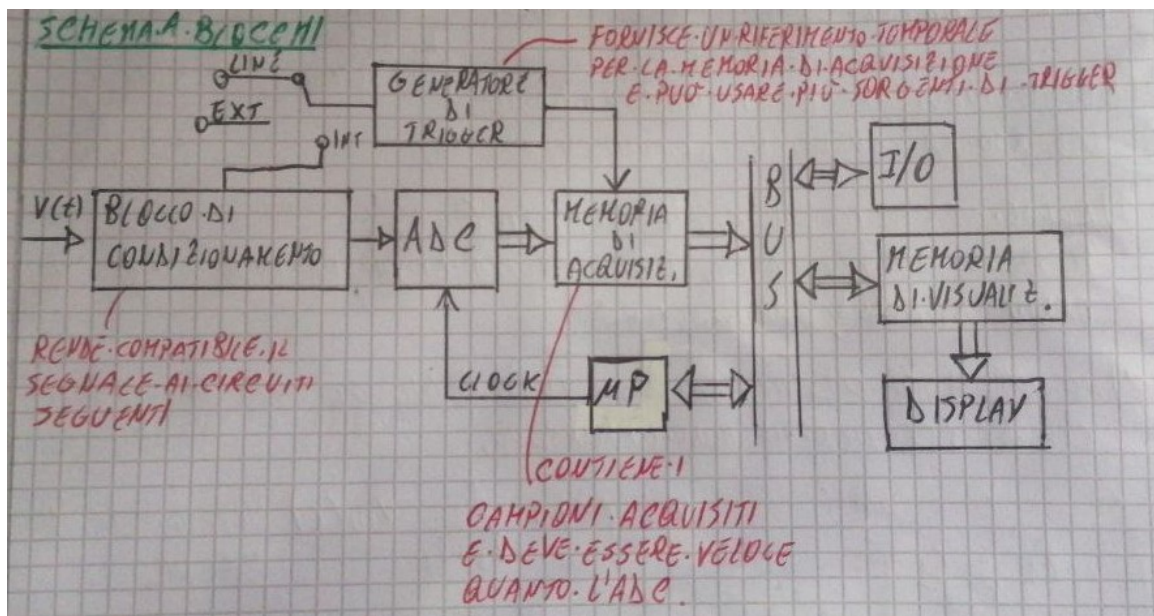 SCHEMA.A.BLOCCHI
LINE
EXT
INT
GENERATORE
DI
TRIGGER
FORNISCE.UN.RIFERIMENTO.TEMPORALE
PER.LA.MEMORIA.DI.ACQUISIZIONE
E.PUÒ.USARE.PIÙ.SORGENTI.DI.TRIGGER
V(t)
BLOCCO.DI
CONDIZIONAMENTO
ADC
MEMORIA
DI
ACQUISIZ.
BUS
I/O
MEMORIA
DI.VISUALIZ.
DISPLAY
CLOCK
μP
RENDE.COMPATIBILE.IL
SEGNALE.AI.CIRCUITI
SEGUENTI
CONTIENE.I
CAMPIONI.ACQUISITI
E.DEVE.ESSERE.VELOCE
QUANTO.L'ADC.